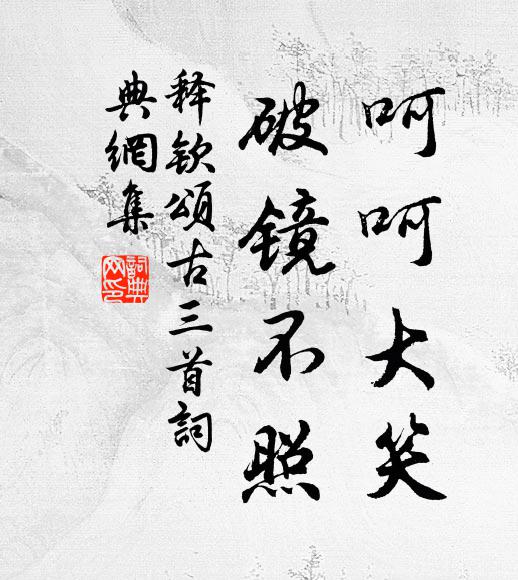 呵呵大笑
破镜不照
释钦頌古三首詞
典網集
詞典网印